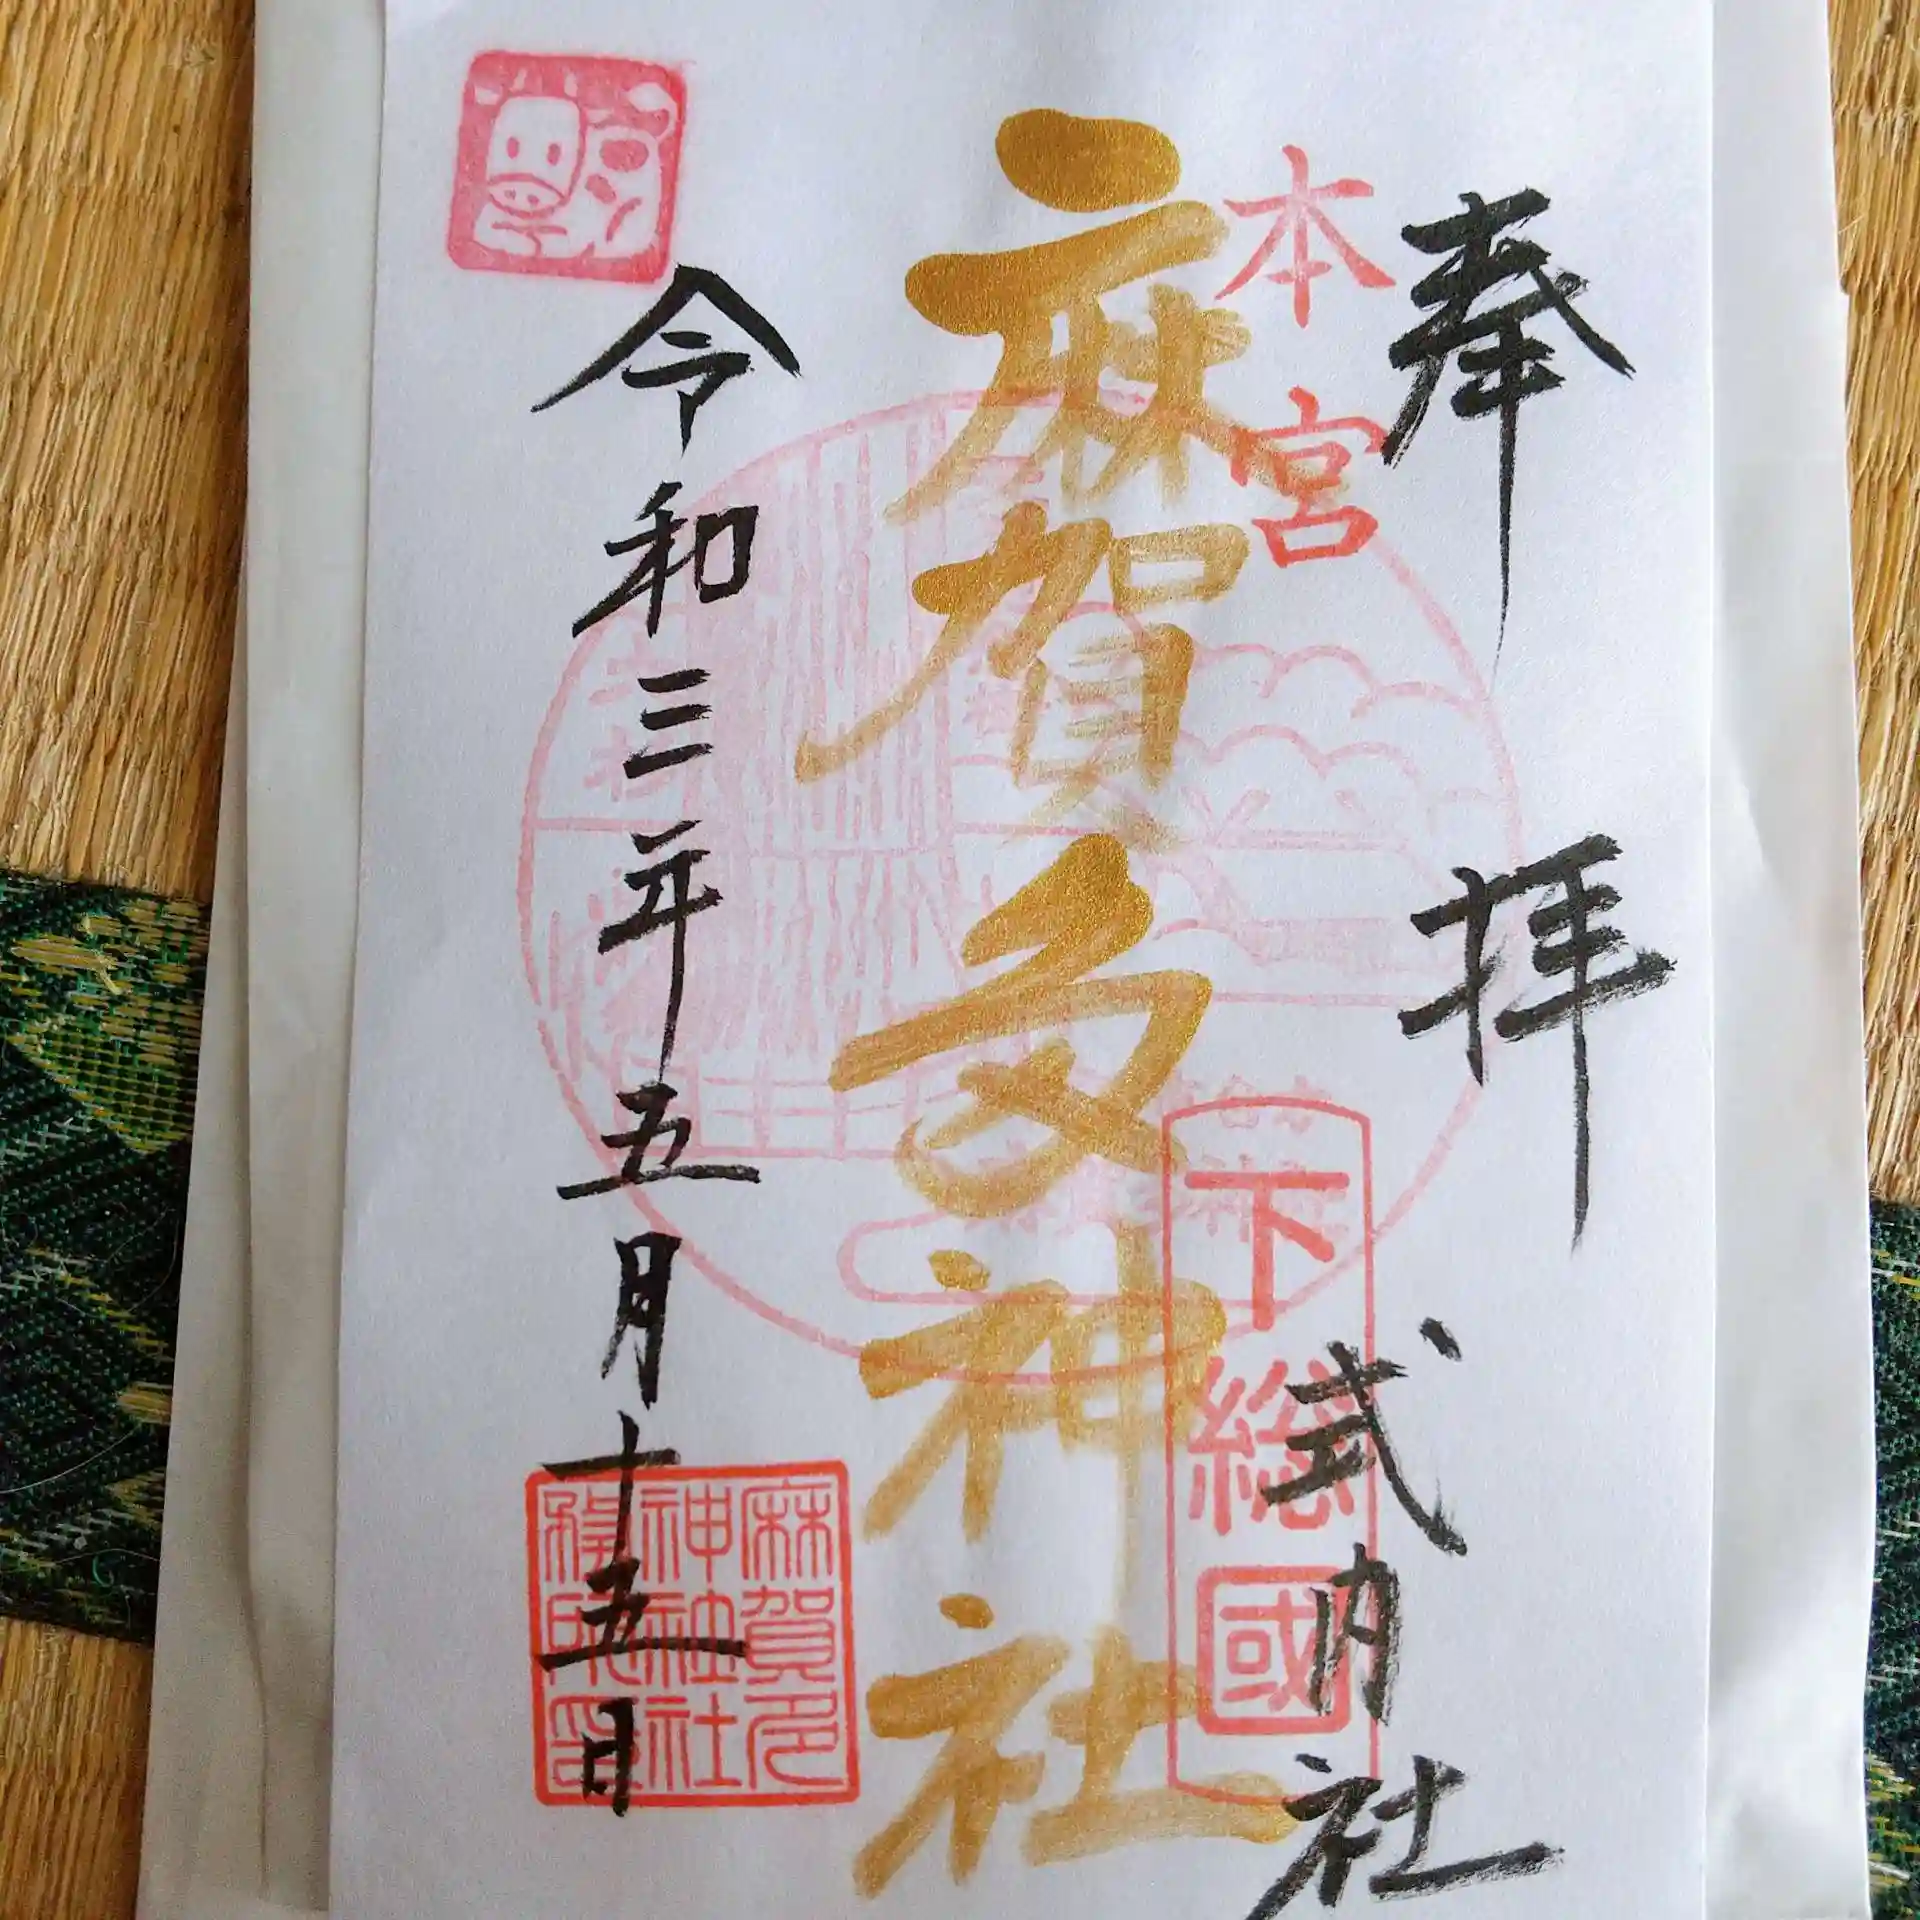 奉拝
式内社
本宮
下総國
麻賀多神社
令和三年五月十五日
麻賀多
神社社